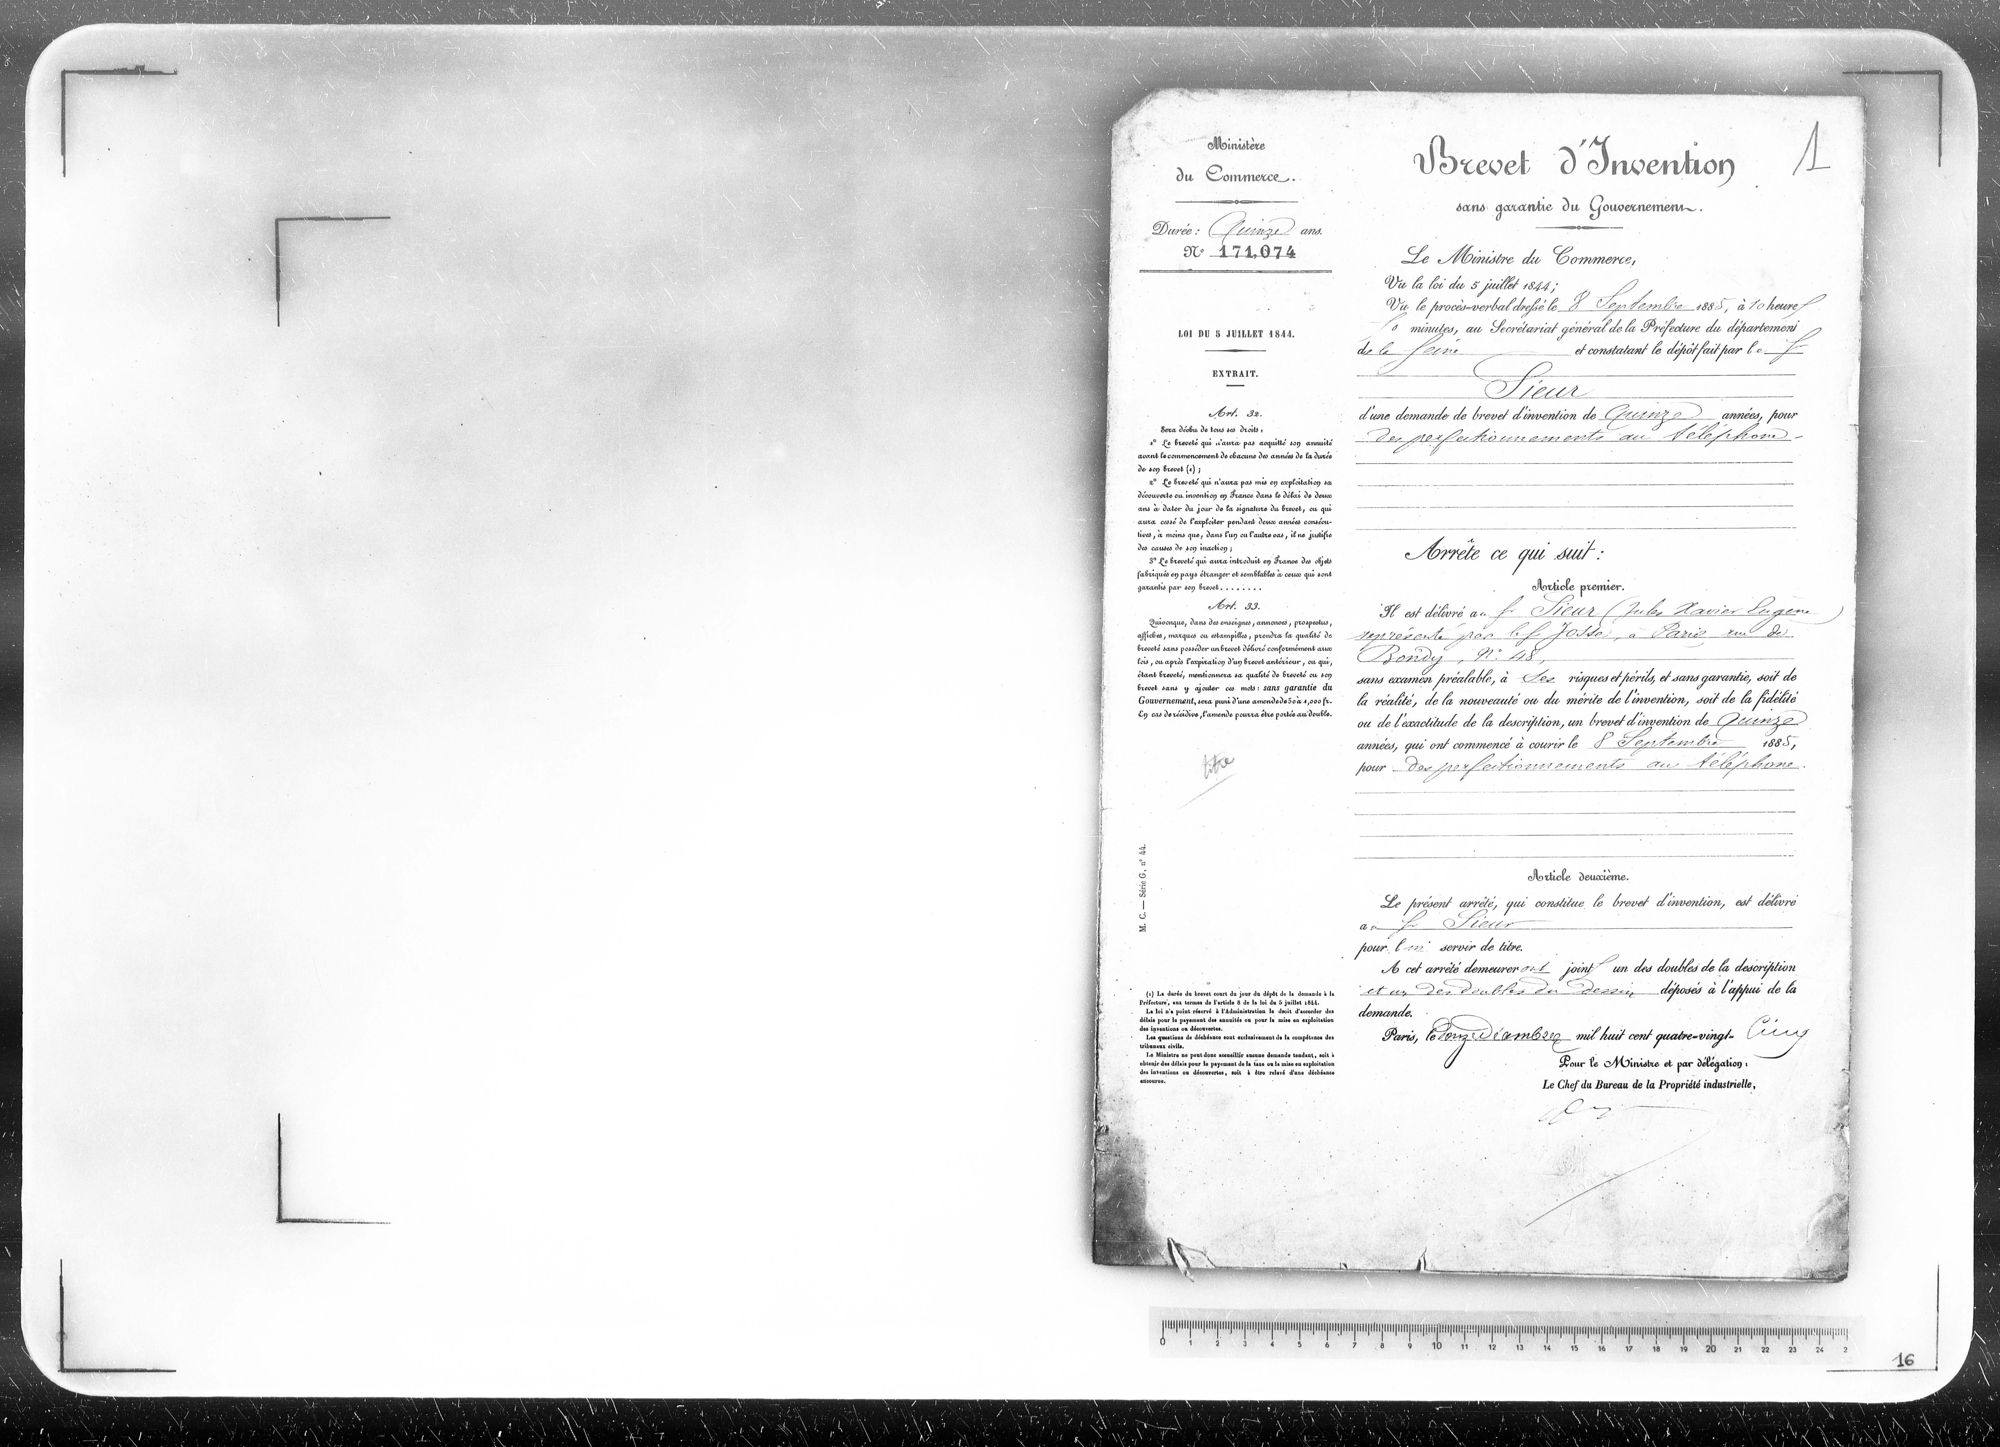 Ministère
du Commerce.
Durée : Quinze ans.
N° 171,074
LOI DU 5 JUILLET 1844.
EXTRAIT.
Art. 32.
Sera déchu de tous ses droits :
1° Le breveté qui n'aura pas acquitté son annuité
avant le commencement de chacune des années de la durée
de son brevet (1) ;
2° Le breveté qui n'aura pas mis en exploitation sa
découverte ou invention en France dans le délai de deux
ans à dater du jour de la signature du brevet, ou qui
aura cessé de l'exploiter pendant deux années consécu-
tives, à moins que, dans l'un ou l'autre cas, il ne justifie
des causes de son inaction ;
3° Le breveté qui aura introduit en France des objets
fabriqués en pays étranger et semblables à ceux qui sont
garantis par son brevet........
Art. 33.
Quiconque, dans des enseignes, annonces, prospectus,
affiches, marques ou estampilles, prendra la qualité de
breveté sans posséder un brevet délivré conformément aux
lois, ou après l'expiration d'un brevet antérieur, ou qui,
étant breveté, mentionnera sa qualité de breveté ou son
brevet sans y ajouter ces mots : sans garantie du
Gouvernement, sera puni d'une amende de 50 à 1,000 fr.
En cas de récidive, l'amende pourra être portée au double.
titre
M. C. — Série G, n° 44.
(1) La durée du brevet court du jour du dépôt de la demande à la
Préfecture, aux termes de l'article 8 de la loi du 5 juillet 1844.
La loi n'a point réservé à l'Administration le droit d'accorder des
délais pour le payement des annuités ou pour la mise en exploitation
des inventions ou découvertes.
Les questions de déchéance sont exclusivement de la compétence des
tribunaux civils.
Le Ministre ne peut donc accueillir aucune demande tendant, soit à
obtenir des délais pour le payement de la taxe ou la mise en exploitation
des inventions ou découvertes, soit à être relevé d'une déchéance
encourue.
1
Brevet d'Invention
sans garantie du Gouvernement.
Le Ministre du Commerce,
Vu la loi du 5 juillet 1844 ;
Vu le procès-verbal dressé le 8 Septembre 1885, à 10 heures
minutes, au Secrétariat général de la Préfecture du département
de la Seine et constatant le dépôt fait par le S.
Sieur
d'une demande de brevet d'invention de Quinze années, pour
des perfectionnements au téléphone.
Arrête ce qui suit :
Article premier.
Il est délivré au S. Sieur (Jules Xavier Eugène)
représenté par le S. Josse, à Paris rue de
Bondy, N° 48,
sans examen préalable, à ses risques et périls, et sans garantie, soit de
la réalité, de la nouveauté ou du mérite de l'invention, soit de la fidélité
ou de l'exactitude de la description, un brevet d'invention de Quinze
années, qui ont commencé à courir le 8 Septembre 1885,
pour des perfectionnements au téléphone.
Article deuxième.
Le présent arrêté, qui constitue le brevet d'invention, est délivré
au S. Sieur
pour lui servir de titre.
A cet arrêté demeureront joints un des doubles de la description
et un des doubles du dessin déposés à l'appui de la
demande.
Paris, le Onze Décembre mil huit cent quatre-vingt- Cinq
Pour le Ministre et par délégation :
Le Chef du Bureau de la Propriété industrielle,
0 1 2 3 4 5 6 7 8 9 10 11 12 13 14 15 16 17 18 19 20 21 22 23 24 2
16